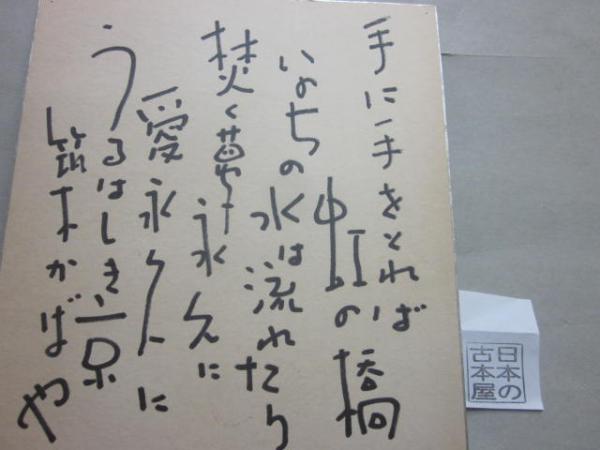 手に手をとれば
虹の橋
いのちの水は流れたり
焚く 永久に
愛永久に
うるはしき京
築かばや
日本の
古本屋